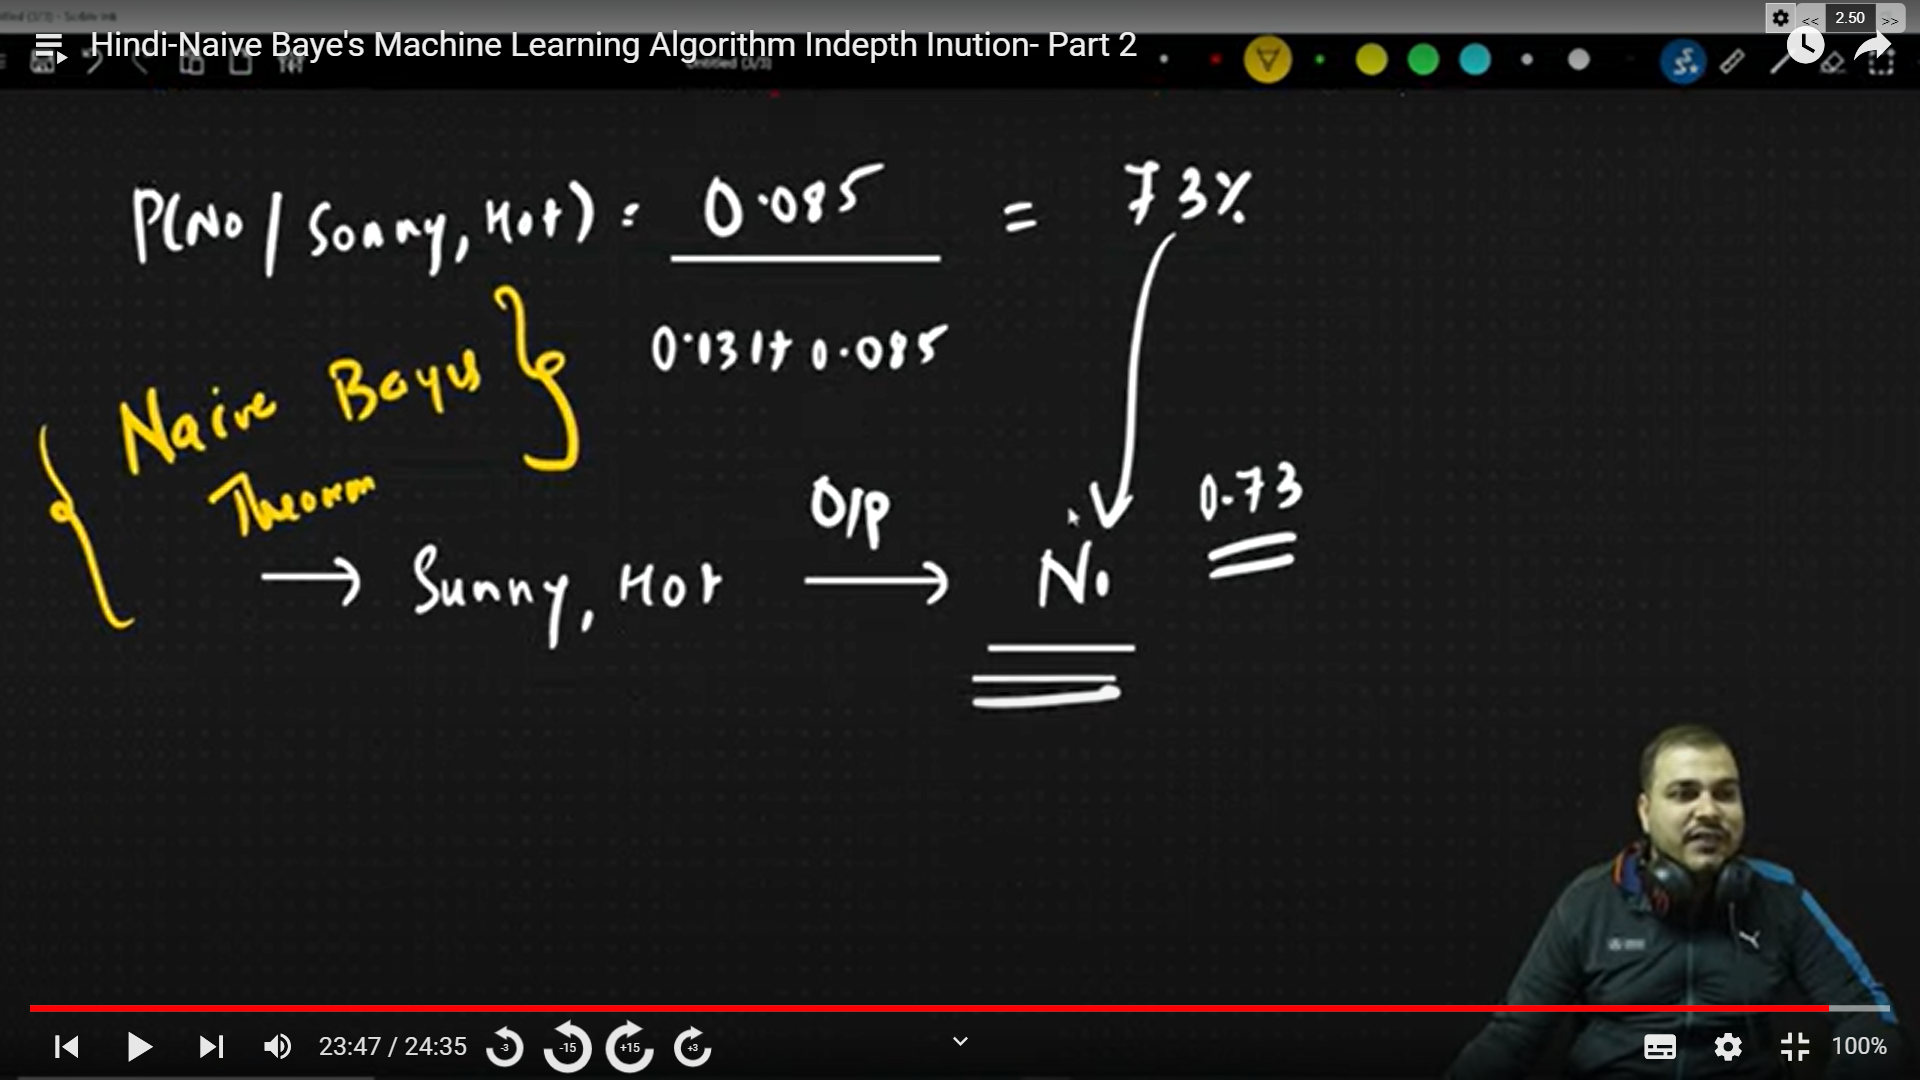 2.50
<< >>
Hindi-Naive Baye's Machine Learning Algorithm Indepth Inution- Part 2
Untitled (3/3)
P(No / Sonny, Hot) : 0.085 = 73%
0.131+ 0.085
Naive Bayes
Theorem
O/P
0.73
→ Sunny, Hot → No
23:47 / 24:35
-3
-15
+15
+3
100%